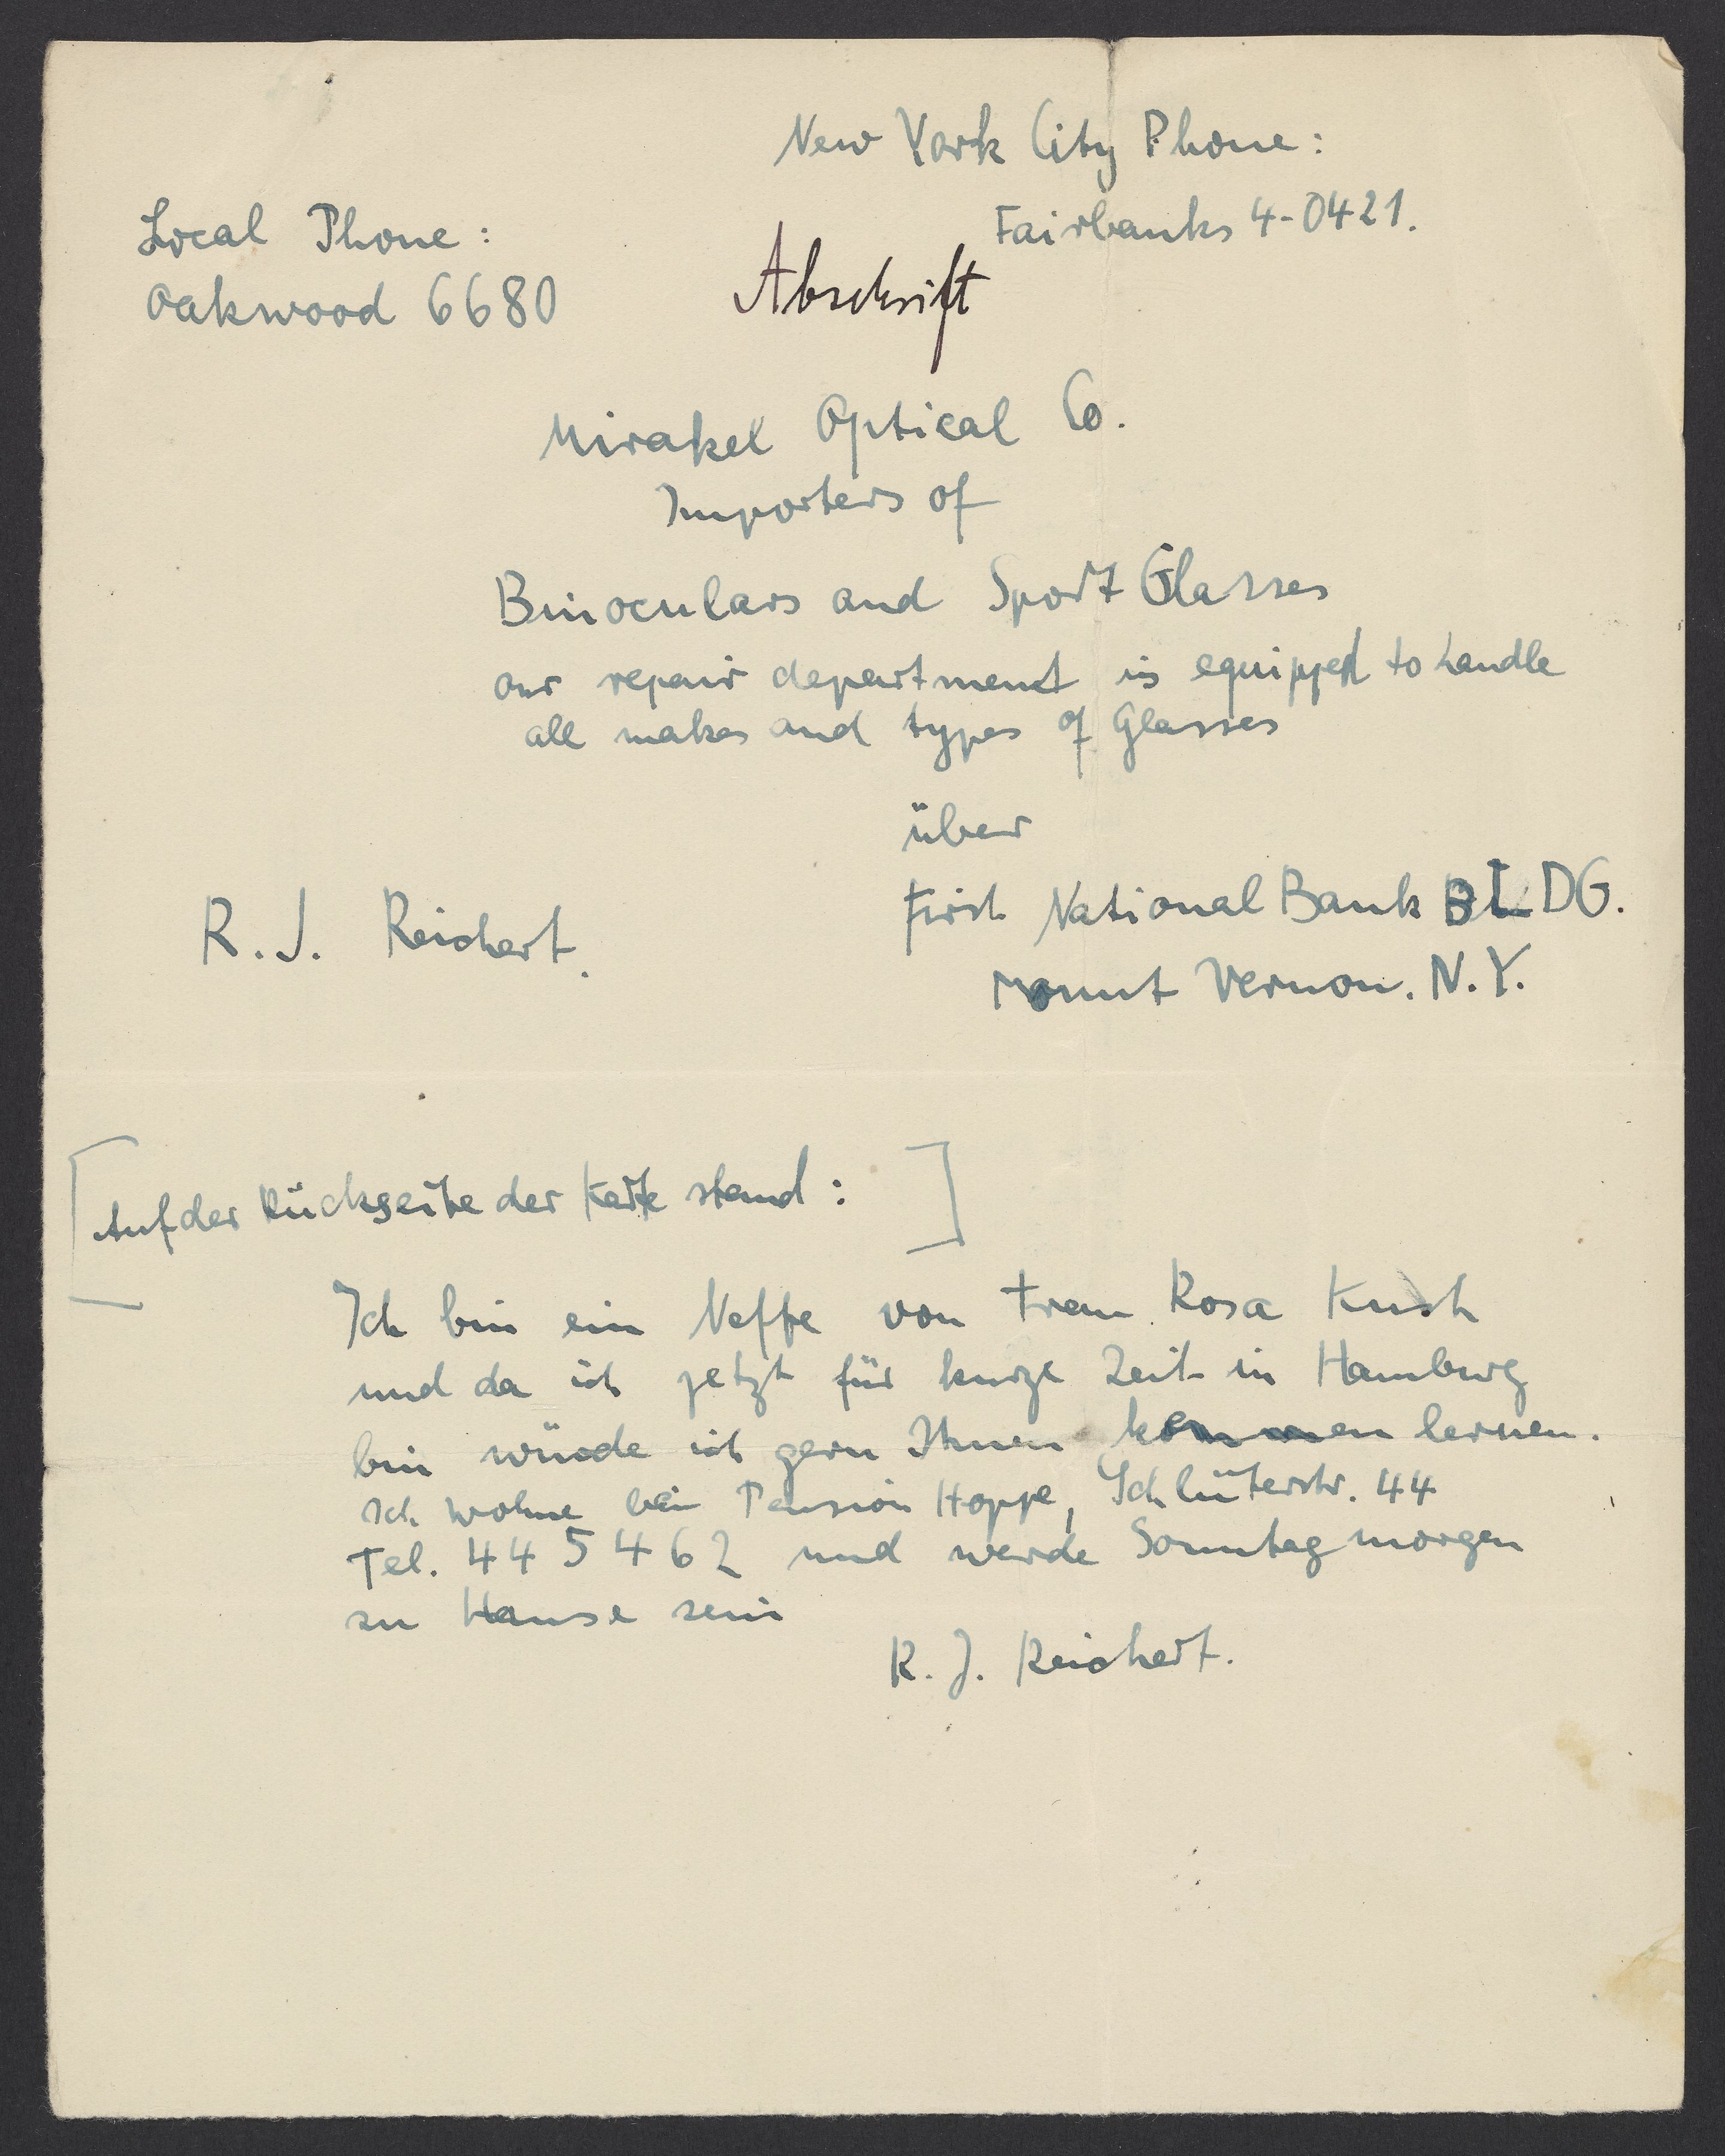 New York City Phone:
Fairbanks 4-0421.
Local Phone:
Oakwood 6680
Abschrift
Mirakel Optical Co.
Importers of
Binoculars and Sport Glasses
our repair department is equipped to handle
all makes and types of Glasses
über
First National Bank BLDG.
Mount Vernon. N.Y.
R. J. Reichert.
[Auf der Rückseite der Karte stand:]
Ich bin ein Neffe von Frau Rosa
und da ich jetzt für kurze Zeit in Hamburg
bin würde ich gern Ihnen kennen lernen.
Ich wohne bei Pension Hoppe, Schlüterstr. 44
Tel. 445462 und werde Sonntag morgen
zu Hause sein
R. J. Reichert.